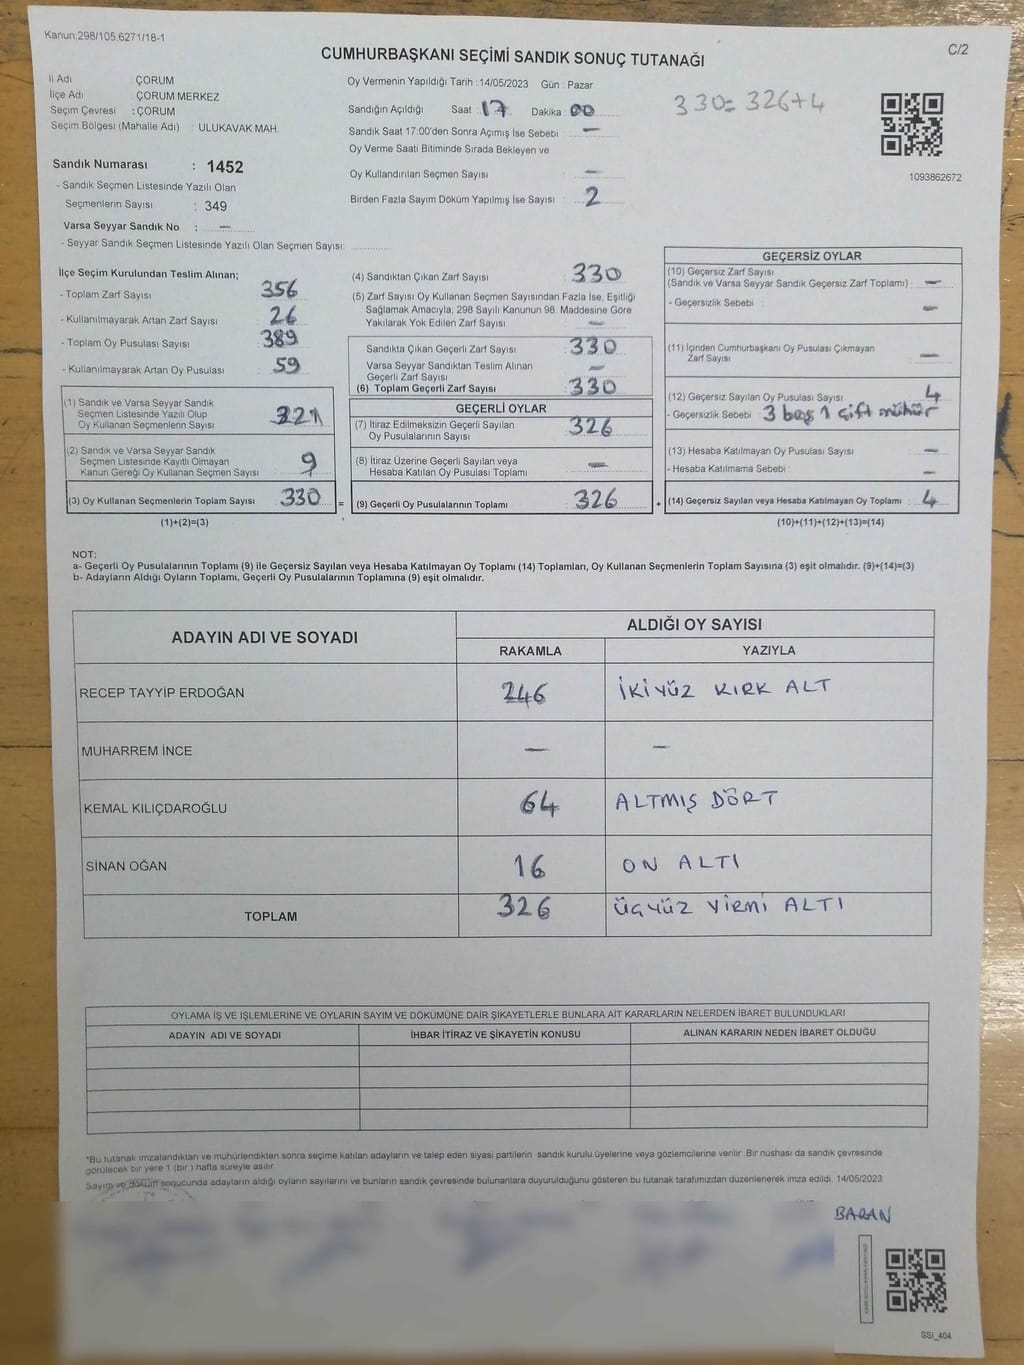 Kanun;298/105;6271/18-1
C/2
CUMHURBAŞKANI SEÇİMİ SANDIK SONUÇ TUTANAĞI
İl Adı ÇORUM
İlçe Adı : ÇORUM MERKEZ
Seçim Çevresi : ÇORUM
Seçim Bölgesi (Mahalle Adı) : ULUKAVAK MAH.
Oy Vermenin Yapıldığı Tarih : 14/05/2023 Gün : Pazar
Sandığın Açıldığı Saat : 17 Dakika : 00
330=326+4
Sandık Saat 17:00'den Sonra Açımış İse Sebebi : —
Oy Verme Saati Bitiminde Sırada Bekleyen ve
Oy Kullandırılan Seçmen Sayısı : —
Birden Fazla Sayım Döküm Yapılmış İse Sayısı : 2
1093862672
Sandık Numarası : 1452
- Sandık Seçmen Listesinde Yazılı Olan
Seçmenlerin Sayısı : 349
Varsa Seyyar Sandık No : —
- Seyyar Sandık Seçmen Listesinde Yazılı Olan Seçmen Sayısı:
İlçe Seçim Kurulundan Teslim Alınan;
- Toplam Zarf Sayısı : 356
- Kullanılmayarak Artan Zarf Sayısı : 26
- Toplam Oy Pusulası Sayısı : 389
- Kullanılmayarak Artan Oy Pusulası : 59
(1) Sandık ve Varsa Seyyar Sandık
Seçmen Listesinde Yazılı Olup
Oy Kullanan Seçmenlerin Sayısı : 321
(2) Sandık ve Varsa Seyyar Sandık
Seçmen Listesinde Kayıtlı Olmayan
Kanun Gereği Oy Kullanan Seçmen Sayısı : 9
(3) Oy Kullanan Seçmenlerin Toplam Sayısı : 330 =
(1)+(2)=(3)
(4) Sandıktan Çıkan Zarf Sayısı : 330
(5) Zarf Sayısı Oy Kullanan Seçmen Sayısından Fazla İse, Eşitliği
Sağlamak Amacıyla; 298 Sayılı Kanunun 98. Maddesine Göre
Yakılarak Yok Edilen Zarf Sayısı : —
Sandıkta Çıkan Geçerli Zarf Sayısı : 330
Varsa Seyyar Sandıktan Teslim Alınan
Geçerli Zarf Sayısı : —
(6) Toplam Geçerli Zarf Sayısı : 330
GEÇERLİ OYLAR
(7) İtiraz Edilmeksizin Geçerli Sayılan
Oy Pusulalarının Sayısı : 326
(8) İtiraz Üzerine Geçerli Sayılan veya
Hesaba Katılan Oy Pusulası Toplamı : —
(9) Geçerli Oy Pusulalarının Toplamı : 326 +
GEÇERSİZ OYLAR
(10) Geçersiz Zarf Sayısı
(Sandık ve Varsa Seyyar Sandık Geçersiz Zarf Toplamı) : —
- Geçersizlik Sebebi : —
(11) İçinden Cumhurbaşkanı Oy Pusulası Çıkmayan
Zarf Sayısı : —
(12) Geçersiz Sayılan Oy Pusulası Sayısı : 4
- Geçersizlik Sebebi : 3 boş 1 çift mühür
(13) Hesaba Katılmayan Oy Pusula Sayısı : —
- Hesaba Katılmama Sebebi : —
(14) Geçersiz Sayılan veya Hesaba Katılmayan Oy Toplamı : 4
(10)+(11)+(12)+(13)=(14)
NOT:
a- Geçerli Oy Pusulalarının Toplamı (9) ile Geçersiz Sayılan veya Hesaba Katılmayan Oy Toplamı (14) Toplamları, Oy Kullanan Seçmenlerin Toplam Sayısına (3) eşit olmalıdır. (9)+(14)=(3)
b- Adayların Aldığı Oyların Toplamı, Geçerli Oy Pusulalarının Toplamına (9) eşit olmalıdır.
ADAYIN ADI VE SOYADI ALDIĞI OY SAYISI
RAKAMLA YAZIYLA
RECEP TAYYİP ERDOĞAN 246 İKİYÜZ KIRK ALT
MUHARREM İNCE — —
KEMAL KILIÇDAROĞLU 64 ALTMIŞ DÖRT
SİNAN OĞAN 16 ON ALTI
TOPLAM 326 ÜÇYÜZ YİRMİ ALTI
OYLAMA İŞ VE İŞLEMLERİNE VE OYLARIN SAYIM VE DÖKÜMÜNE DAİR ŞİKAYETLERLE BUNLARA AİT KARARLARIN NELERDEN İBARET BULUNDUKLARI
ADAYIN ADI VE SOYADI İHBAR İTİRAZ VE ŞİKAYETİN KONUSU ALINAN KARARIN NEDEN İBARET OLDUĞU
*Bu tutanak imzalandıktan ve mühürlendikten sonra seçime katılan adayların ve talep eden siyasi partilerin sandık kurulu üyelerine veya gözlemcilerine verilir .Bir nüshası da sandık çevresinde
görülecek bir yere 1 (bir ) hafta süreyle asılır
Sayım ve döküm sonucunda adayların aldığı oyların sayılarını ve bunların sandık çevresinde bulunanlara duyurulduğunu gösteren bu tutanak tarafımızdan düzenlenerek imza edildi. 14/05/2023
BARAN
SSI_404